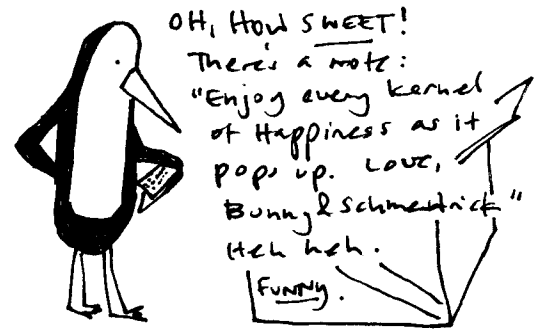 OH, HOW SWEET!
There's a note:
"Enjoy every kernel
of Happiness as it
pops up. Love,
Bunny & Schmedrick"
Heh heh.
FUNNY.